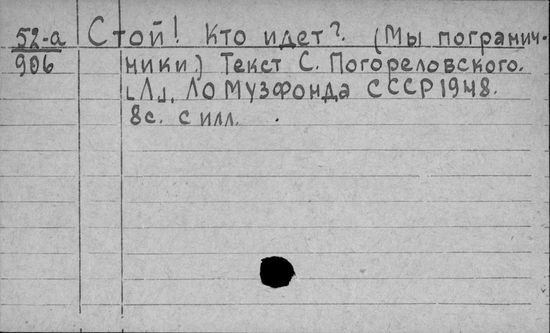 52-а Стой! Кто идет? (Мы погранич-
906 ники) Текст С. Погореловского.
[Л], ЛО Музфонда СССР 1948.
8с. с илл.